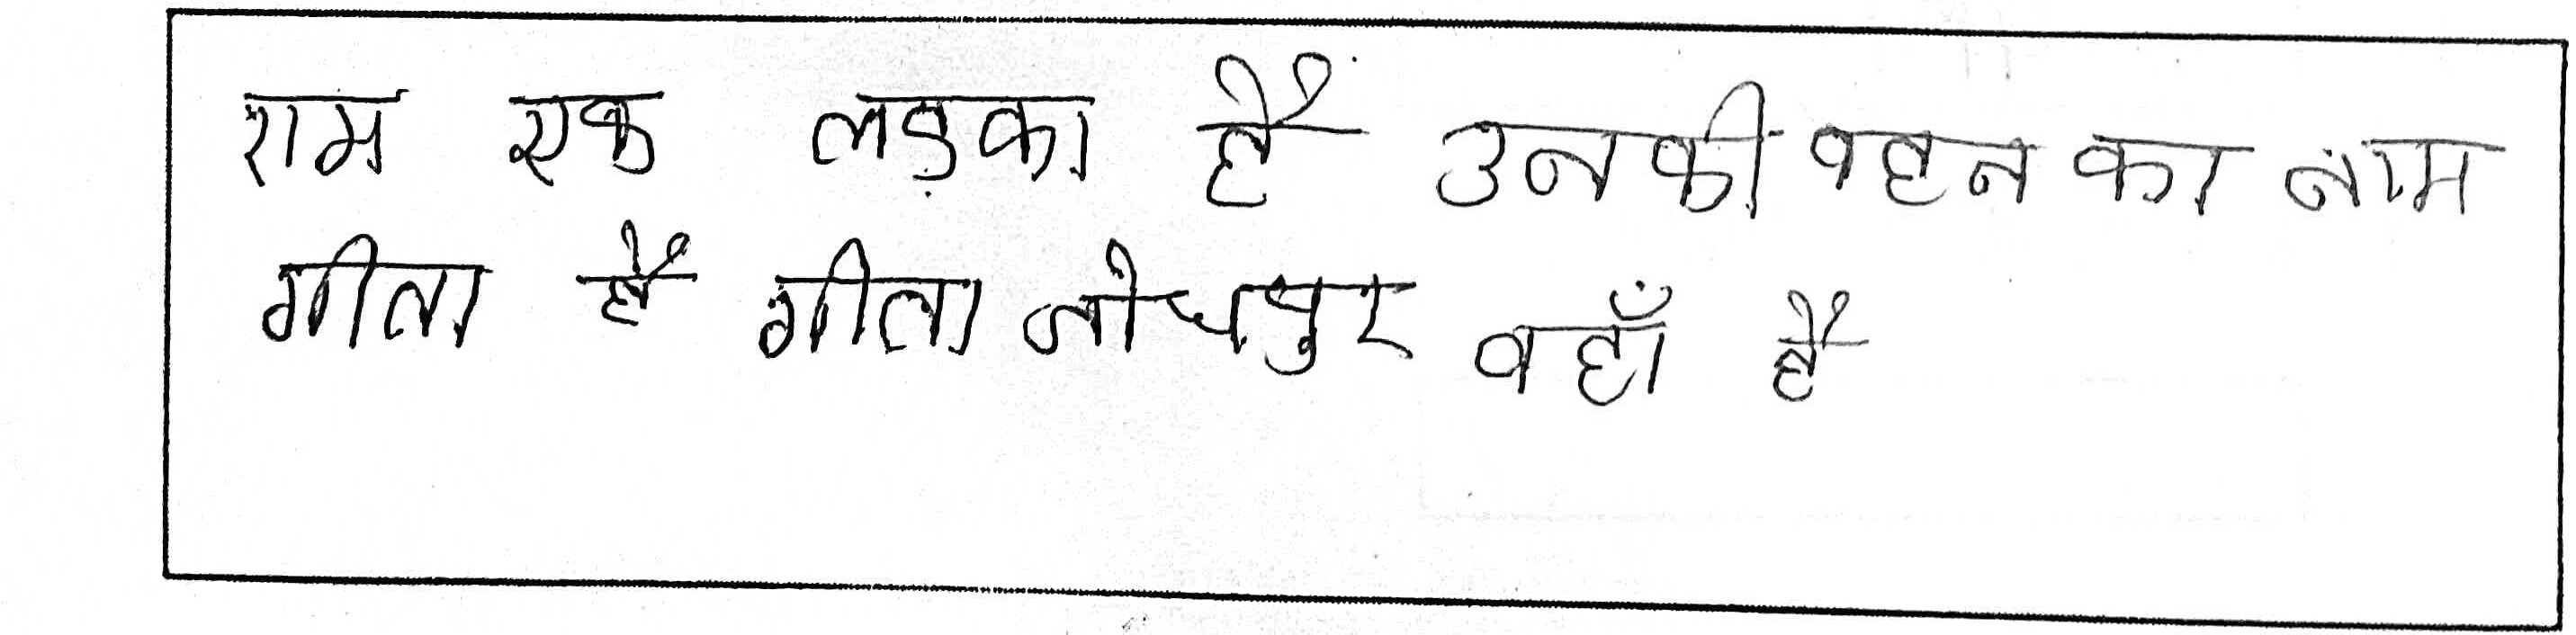 राम एक लड़का है उनकी वहन का नाम
गीता है गीता जोधपुर वहाँ है